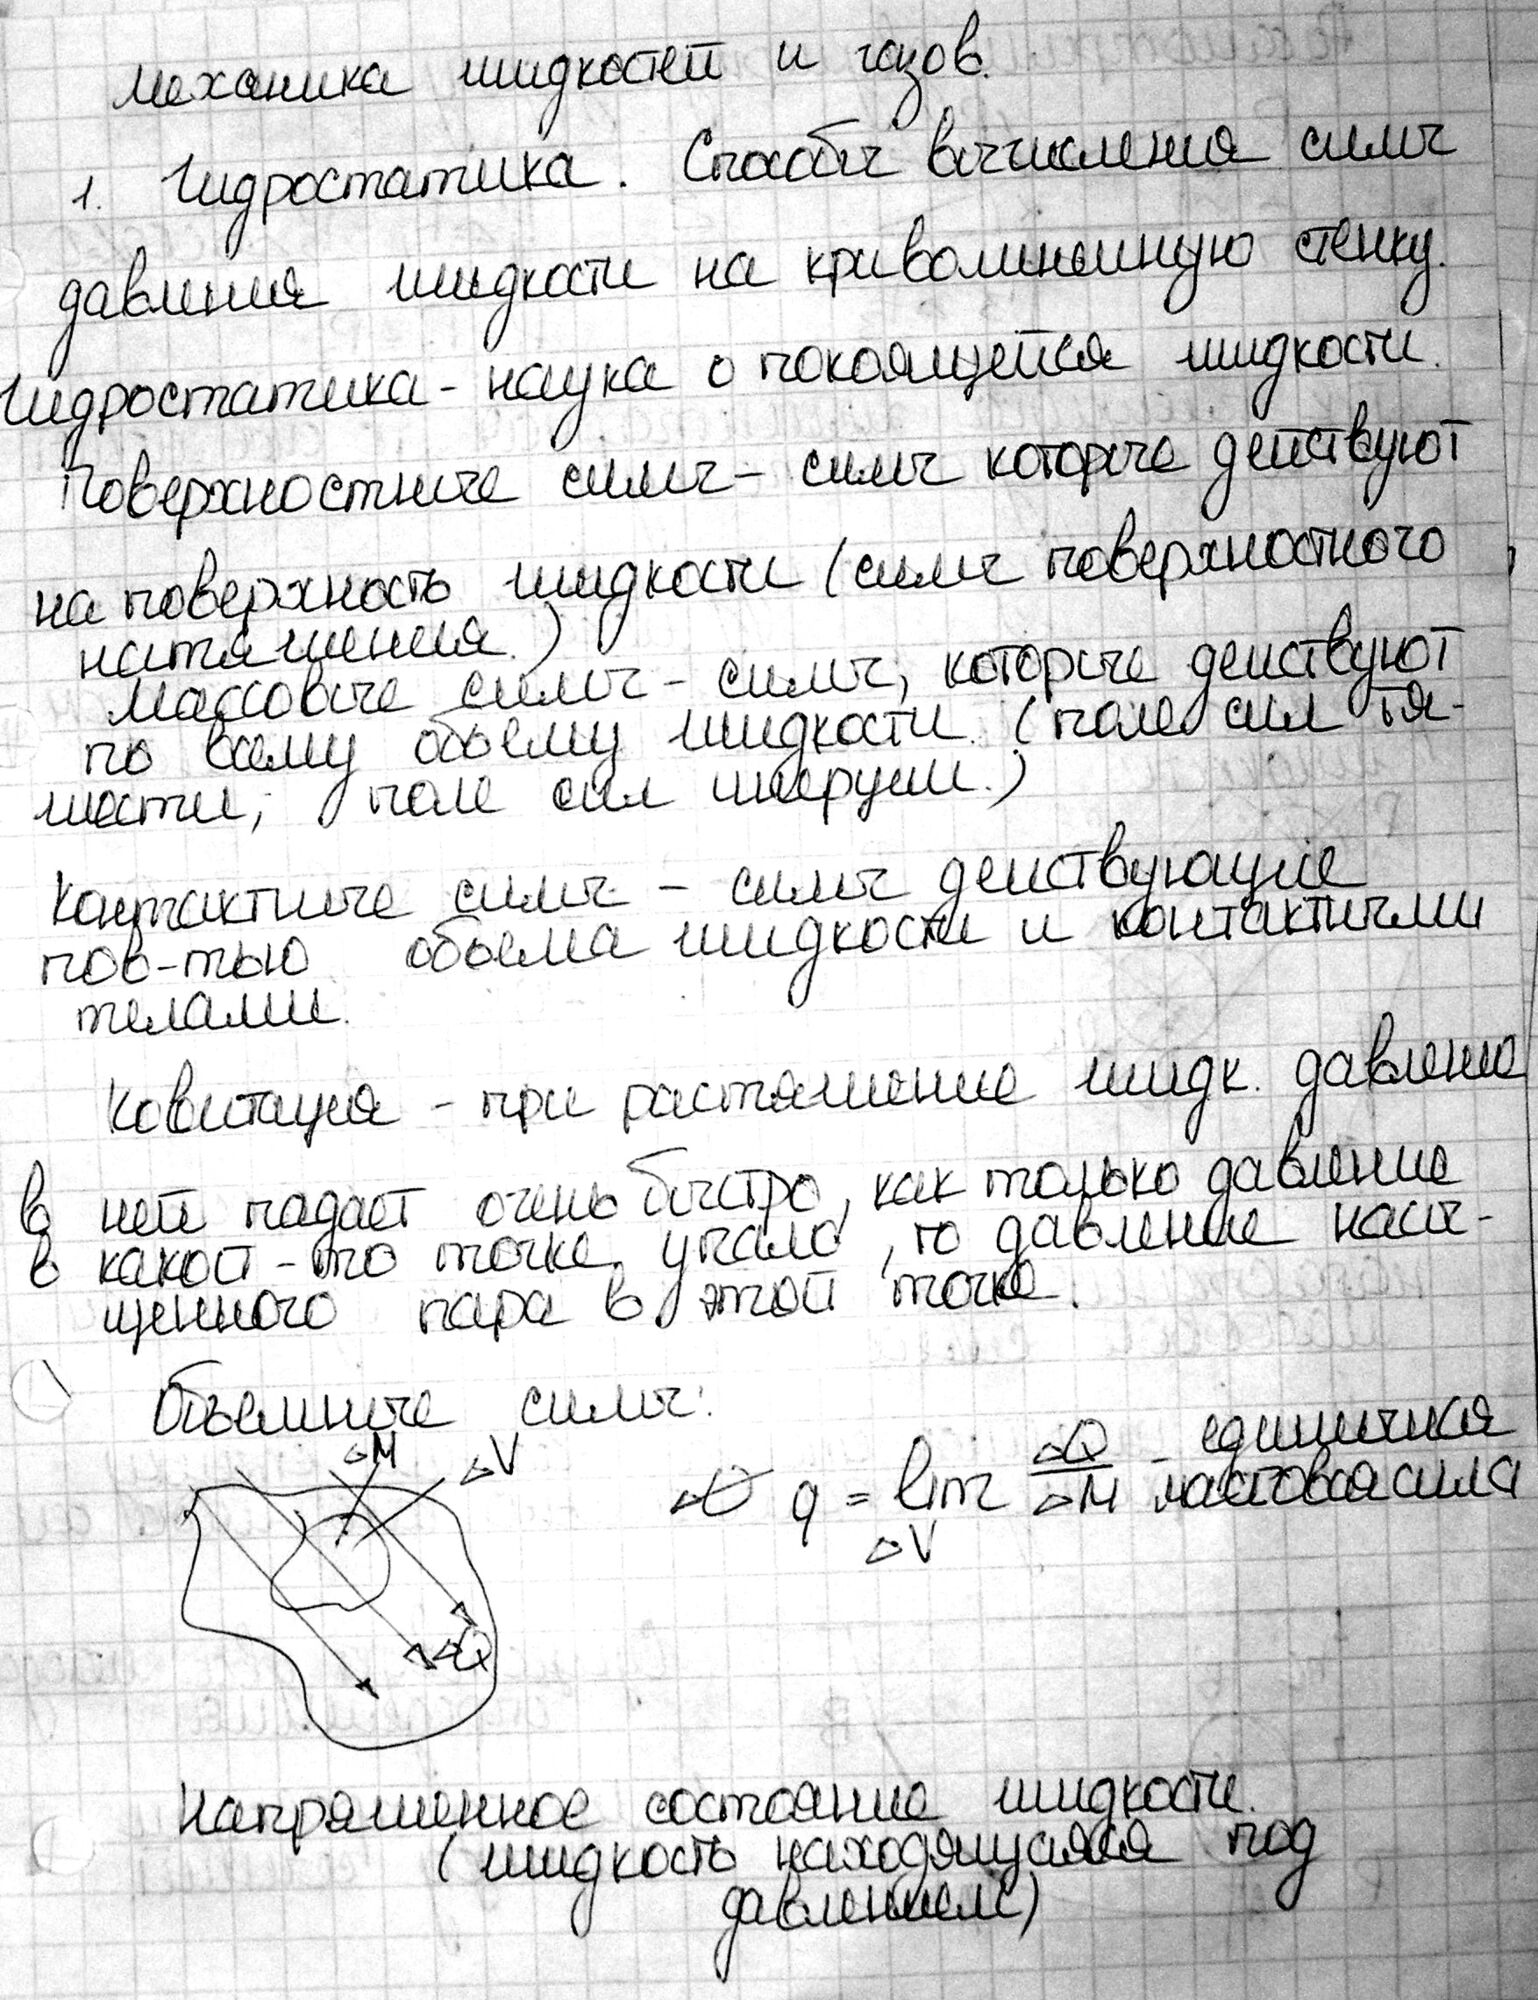 Механика жидкостей и газов.
1. Гидростатика. Способы вычисления силы
давления жидкости на криволинейную стенку.
Гидростатика - наука о покоящейся жидкости.
Поверхностные силы - силы которые действуют
на поверхность жидкости (силы поверхностного
натяжения.)
Массовые силы - силы, которые действуют
по всему объему жидкости. (поле сил тя-
жести, поле сил инерции.)
Контактные силы - силы действующие
пов-тью объема жидкости и контактными
телами.
Ковитация - при растяжение жидк. давление
в ней падает очень быстро, как только давление
в какой-то точке упало, то давление насы-
щенного пара в этой точке.
Объемные силы:
ΔM ΔV
q = lim ΔQ/ΔM - единичная
ΔV массовая сила
ΔQ
Напряженное состояние жидкости.
(жидкость находящуяся под
давлением)